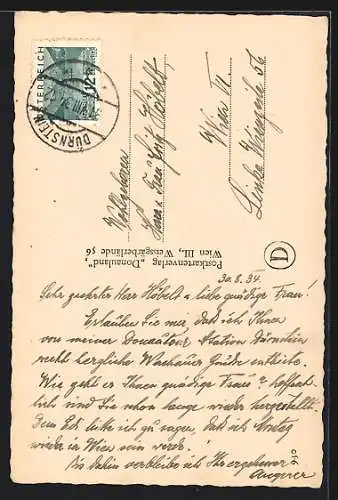 ÖSTERREICH
DÜRNSTEIN
Wohlgeboren
Herrn u. Frau Josef Höbelt
Wien VI.
Linke Wienzeile 56
Postkartenverlag „Donauland",
Wien III., Weissgärberlände 56
D
30.8.34.
Sehr geehrter Herr Höbelt u. liebe gnädige Frau!
Erlauben Sie mir, daß ich Ihnen
von meiner Donautour Station Dürnstein
recht herzliche Wachauer Grüße entbiete.
Wie geht es Ihnen gnädige Frau? Hoffent-
lich sind Sie schon lange wieder hergestellt.
ich zu sagen, daß ich Montag
wieder in Wien sein werde.
Bis dahin verbleibe ich Ihr ergebener